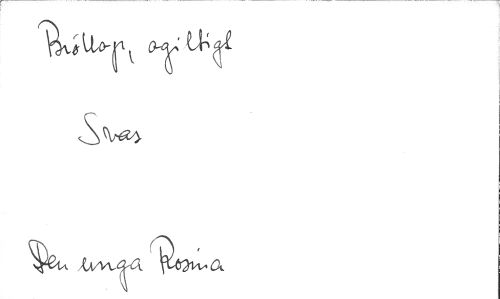 Bröllop, ogiltigt
Svas
Den unga Rosina